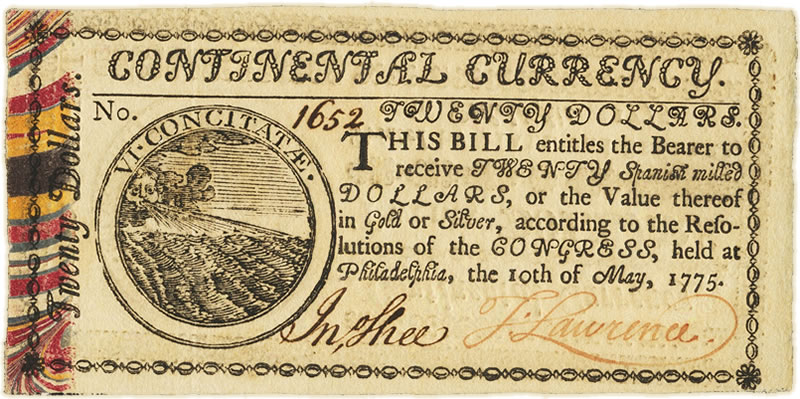 CONTINENTAL CURRENCY.
No. 1652 TWENTY DOLLARS.
THIS BILL entitles the Bearer to
receive TWENTY Spaniſh milled
DOLLARS, or the Value thereof
in Gold or Silver, according to the Reſo-
lutions of the CONGRESS, held at
Philadelphia, the 10th of May, 1775.
VI·CONCITATÆ.
Twenty Dollars.
Jno. Shee
T. Lawrence.